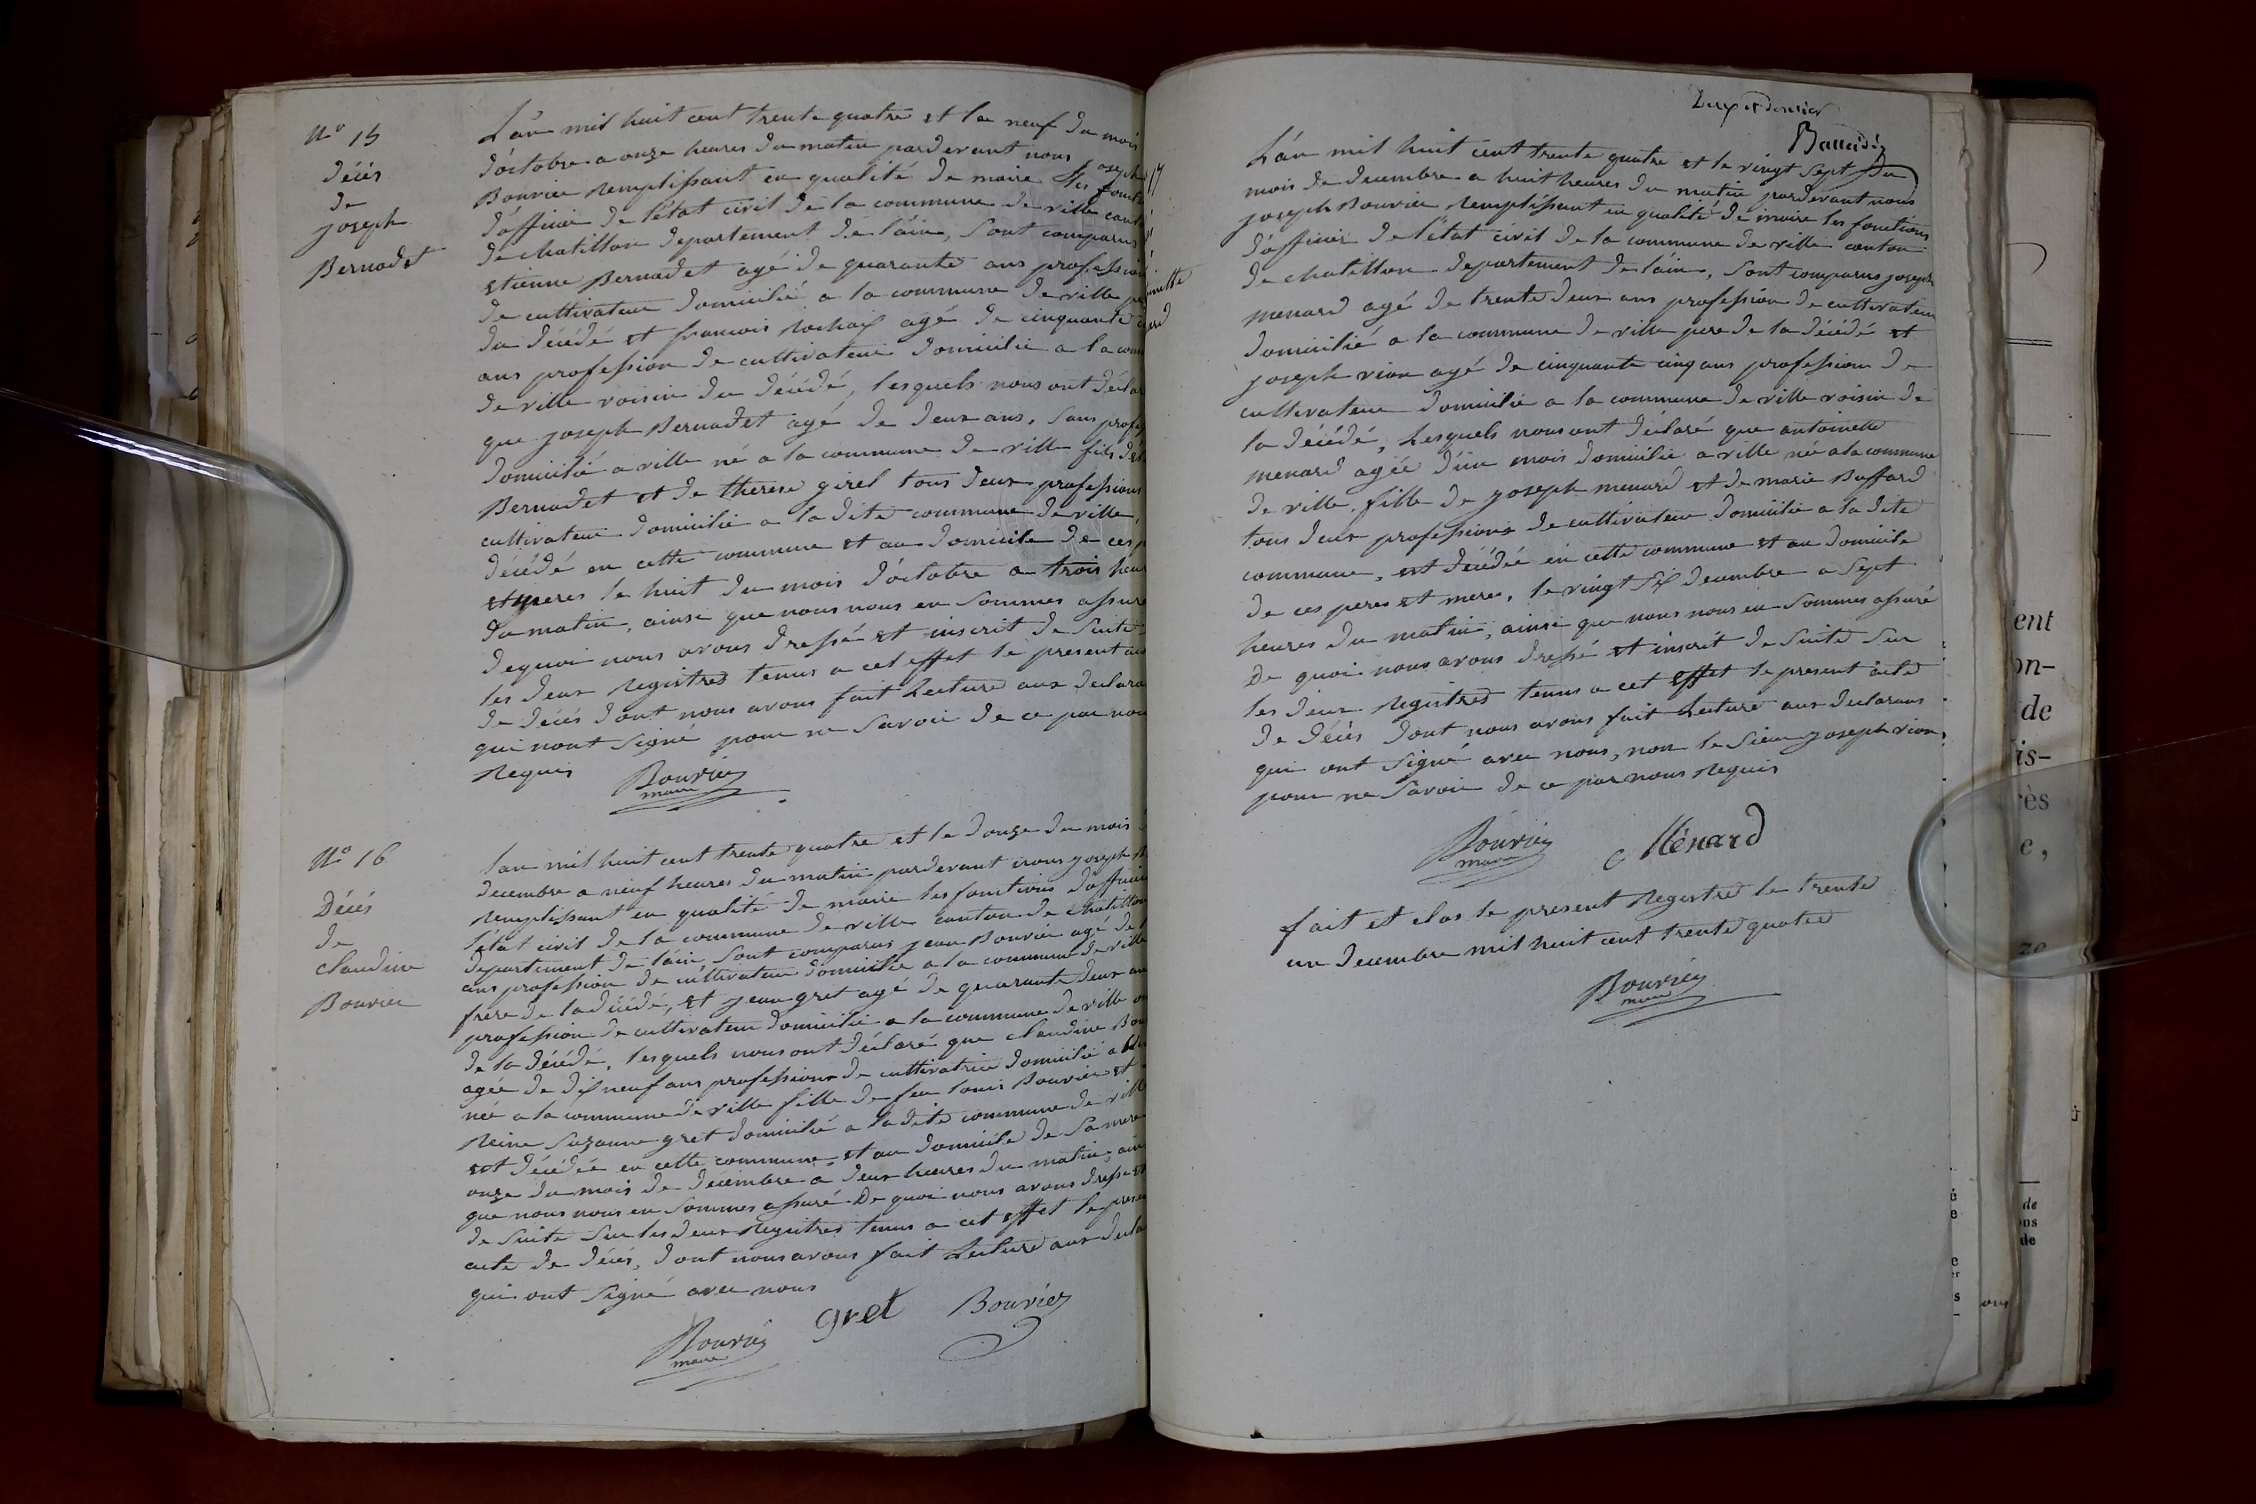 N° 15
Décés
de
joseph
Bernadet
L'an mil huit cent trente quatre et le neuf du mois
d'octobre a onze heures du matin pardevant nous joseph
Bouvier Remplissant en qualité de maire les fonct
d'officier de l'état civil de la commune de ville cant
de chatillon departement de l'ain, sont comparus
etienne Bernadet agé de quarante ans profession
de cultivateur domicilié a la commune de ville pe
du décédé et francois Rochaix agé de cinquante
ans profession de cultivateur domicilié a la com
de ville voisin du décédé, lesquels nous ont décla
que joseph Bernadet agé de deux ans, sans profes
domicilié a ville né a la commune de ville fils d'et
Bernadet et de therese girel tous deux professions
cultivateur domicilié a la dite commune de ville,
décédé en cette commune et au domicile de ces p
et meres le huit du mois d'octobre a trois heur
du matin, ainsi que nous nous en sommes assuré
dequoi nous avons dressé et inscrit de suite
les deux Registres tenus a cet effet le present act
de décés dont nous avons fait Lecture aux declara
qui nont signé pour ne savoir de ce par nou
Requis
Bouvier
maire
N° 16
Décés
de
claudine
Bouvier
lan mil huit cent trente quatre et le douze du mois
decembre a neuf heures du matin pardevant nous joseph B
Remplissant en qualité de maire les fonctions d'officie
l'état civil de la commune de ville canton de chatillon
departement de l'ain, sont comparus jean Bouvier agé de
ans profession de cultivateur domicilié a la commune de ville
frere de la décédé, et jean gret agé de quarante deux an
profession de cultivateur domicilié a la commune de ville
de la décédé, lesquels nous ont déclaré que claudine Bou
agée de dix neuf ans profession de cultivatrice domicilié a
née a la commune de ville fille de feu louis Bouvier et
Reine suzanne gret domicilié a la dite commune de ville
est décédée en cette commune et au domicile de sa mere
onze du mois de décembre a deux heures du matin, ain
que nous nous en sommes assuré De quoi nous avons dressé et
de suite sur les deux Registres tenus a cet effet le prese
acte de décés, dont nous avons fait Lecture aux decla
qui ont signé avec nous
Bouvier
maire
gret
Bouvier
17
inette
ard
L'an mil huit cent trente quatre et le vingt sept du
mois de decembre a huit heures du matin pardevant nous
joseph Bouvier Remplissant en qualité de maire les fonctions
d'officier de l'état civil de la commune de ville canton
de chatillon departement de l'ain, sont comparus joseph
menard agé de trente deux ans profession de cultivateur
domicilié a la commune de ville pere de la décédé et
joseph vion agé de cinquante cinq ans profession de
cultivateur domicilié a la commune de ville voisin de
la décédé, Lesquels nous ont déclaré que antoinette
menard agée d'un mois domicilié a ville né a la commune
de ville, fille de joseph menard et de marie Buffard
tous deux professions de cultivateur domicilié a la dite
commune, est décédée en cette commune et au domicile
de ces peres et meres, le vingt six decembre a sept
heures du matin, ainsi que nous nous en sommes assuré
De quoi nous avons dressé et inscrit de suite sur
les deux Registres tenus a cet effet le present acte
de décés dont nous avons fait Lecture aux declarans
qui ont signé avec nous, non le sieur joseph vion
pour ne savoir de ce par nous Requis
Bouvier
maire
Ménard
fait et clos le present Registre le trente
un decembre mil huit cent trente quatre
Bouvier
maire
ent
on-
de
is-
rès
e,
de
ons
de